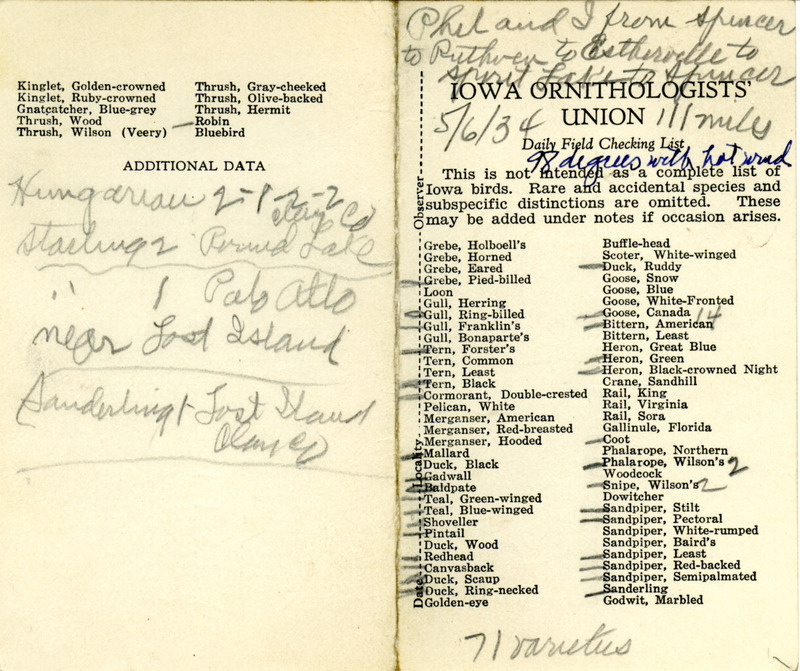 Kinglet, Golden-crowned
Kinglet, Ruby-crowned
Gnatcatcher, Blue-grey
Thrush, Wood
Thrush, Wilson (Veery)
Thrush, Gray-cheeked
Thrush, Olive-backed
Thrush, Hermit
Robin
Bluebird
ADDITIONAL DATA
Hungarian 2-1-2-2
Clay Co
Starling 2 Round Lake
" 1 Palo Alto
near Lost Island
Sanderling 1 Lost Island
Clay Co
Phil and I from Spencer
to Ruthven to Estherville to
Spirit Lake to Spencer
IOWA ORNITHOLOGISTS'
UNION 111 miles
5/6/34
Daily Field Checking List
98 degrees with hot wind
This is not intended as a complete list of
Iowa birds. Rare and accidental species and
subspecific distinctions are omitted. These
may be added under notes if occasion arises.
Observer
Locality
Date
Grebe, Holboell's
Grebe, Horned
Grebe, Eared
Grebe, Pied-billed
Loon
Gull, Herring
Gull, Ring-billed
Gull, Franklin's
Gull, Bonaparte's
Tern, Forster's
Tern, Common
Tern, Least
Tern, Black
Cormorant, Double-crested
Pelican, White
Merganser, American
Merganser, Red-breasted
Merganser, Hooded
Mallard
Duck, Black
Gadwall
Baldpate
Teal, Green-winged
Teal, Blue-winged
Shoveller
Pintail
Duck, Wood
Redhead
Canvasback
Duck, Scaup
Duck, Ring-necked
Golden-eye
Buffle-head
Scoter, White-winged
Duck, Ruddy
Goose, Snow
Goose, Blue
Goose, White-Fronted
Goose, Canada 14
Bittern, American
Bittern, Least
Heron, Great Blue
Heron, Green
Heron, Black-crowned Night
Crane, Sandhill
Rail, King
Rail, Virginia
Rail, Sora
Gallinule, Florida
Coot
Phalarope, Northern
Phalarope, Wilson's 2
Woodcock
Snipe, Wilson's 2
Dowitcher
Sandpiper, Stilt
Sandpiper, Pectoral
Sandpiper, White-rumped
Sandpiper, Baird's
Sandpiper, Least
Sandpiper, Red-backed
Sandpiper, Semipalmated
Sanderling
Godwit, Marbled
71 varieties